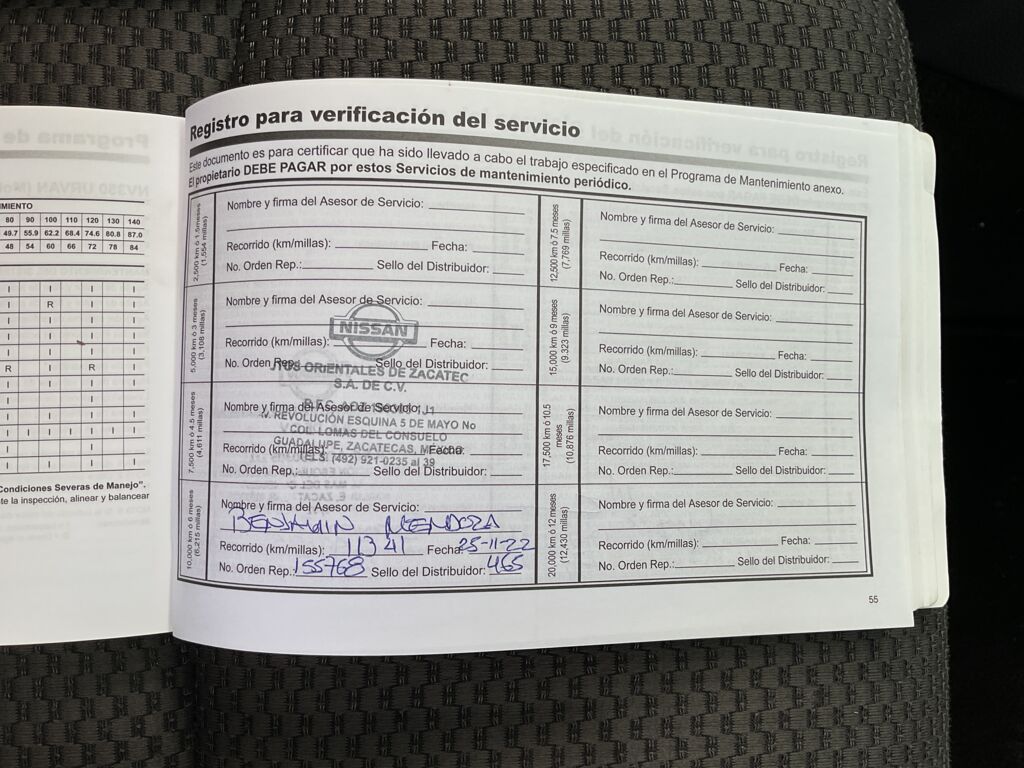 Programa de
NV350 URVAN
MIENTO
80 90 100 110 120 130 140
49.7 55.9 62.2 68.4 74.6 80.8 87.0
48 54 60 66 72 78 84
I I I I
I R I I
I I I I
I I I I
I I I I
R I R I
I I I I
I I I I
I I I I
I I I I I I I
I I I I
I I I I
Condiciones Severas de Manejo".
te la inspección, alinear y balancear
Registro para verificación del servicio
Este documento es para certificar que ha sido llevado a cabo el trabajo especificado en el Programa de Mantenimiento anexo.
El propietario DEBE PAGAR por estos Servicios de mantenimiento periódico.
2,500 km ó 1.5meses
(1,554 millas)
Nombre y firma del Asesor de Servicio:
Recorrido (km/millas): Fecha:
No. Orden Rep.: Sello del Distribuidor:
5,000 km ó 3 meses
(3,108 millas)
Nombre y firma del Asesor de Servicio:
Recorrido (km/millas): Fecha:
No. Orden Rep.: Sello del Distribuidor:
NISSAN
ORIENTALES DE ZACATEC
S.A. DE C.V.
7,500 km ó 4.5 meses
(4,611 millas)
Nombre y firma del Asesor de Servicio:
Recorrido (km/millas): Fecha:
No. Orden Rep.: Sello del Distribuidor:
REVOLUCIÓN ESQUINA 5 DE MAYO No
COL. LOMAS DEL CONSUELO
GUADALUPE, ZACATECAS, MÉXICO
TELS: (492) 921-0235 al 39
10,000 km ó 6 meses
(6,215 millas)
Nombre y firma del Asesor de Servicio:
BENJAMIN MENDOZA
Recorrido (km/millas): 11341 Fecha: 25-11-22
No. Orden Rep.: 155768 Sello del Distribuidor: 465
12,500 km ó 7.5 meses
(7,769 millas)
Nombre y firma del Asesor de Servicio:
Recorrido (km/millas): Fecha:
No. Orden Rep.: Sello del Distribuidor:
15,000 km ó 9 meses
(9,323 millas)
Nombre y firma del Asesor de Servicio:
Recorrido (km/millas): Fecha:
No. Orden Rep.: Sello del Distribuidor:
17,500 km ó 10.5
meses
(10,876 millas)
Nombre y firma del Asesor de Servicio:
Recorrido (km/millas): Fecha:
No. Orden Rep.: Sello del Distribuidor:
20,000 km ó 12 meses
(12,430 millas)
Nombre y firma del Asesor de Servicio:
Recorrido (km/millas): Fecha:
No. Orden Rep.: Sello del Distribuidor:
55